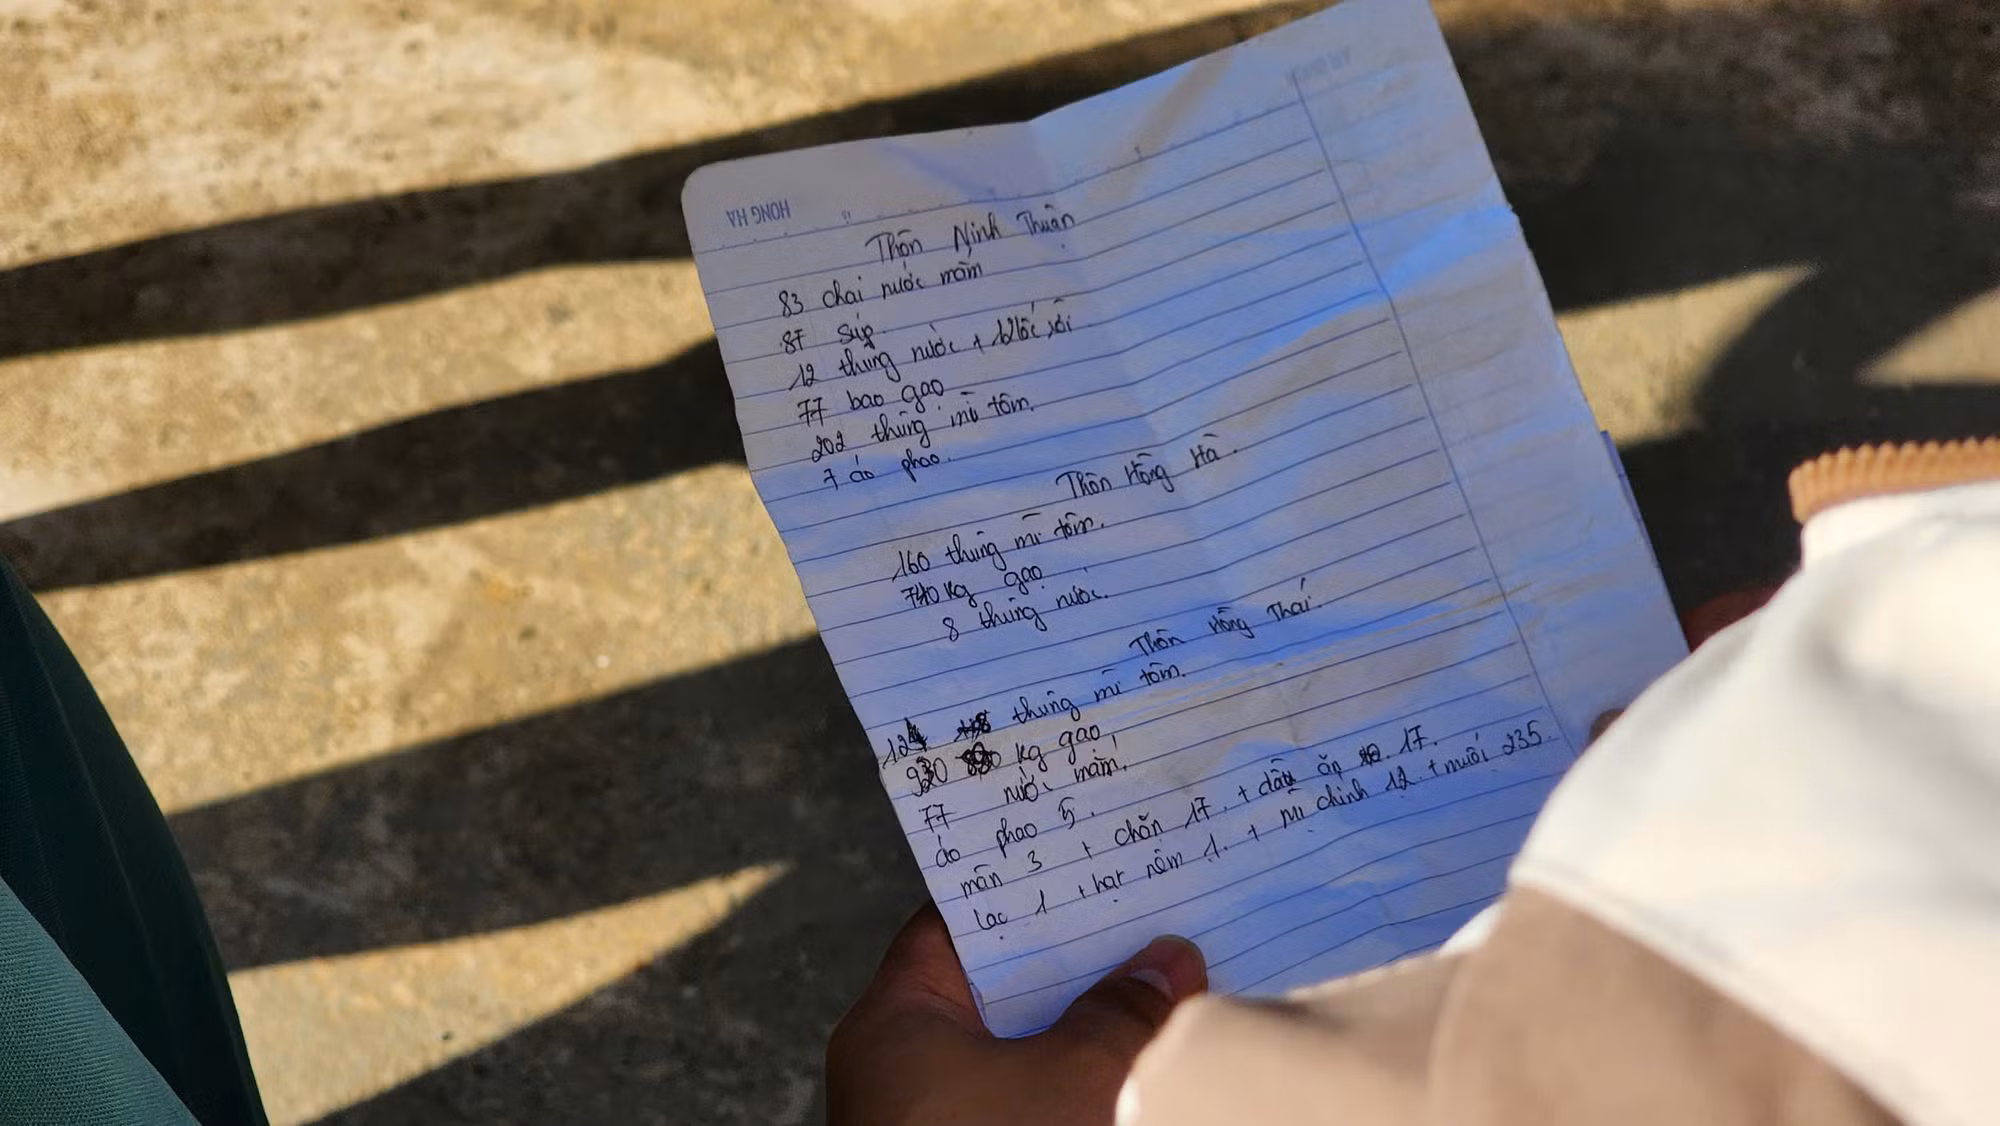 HONG HA
Thôn Ninh Thuận
83 chai nước mắm
87 súp.
12 thùng nước + 12 lốc sôi
77 bao gạo
202 thùng mì tôm.
7 áo phao.
Thôn Hồng Hà.
160 thùng mì tôm.
740 kg gạo
8 thùng nước.
Thôn Hồng Thái.
124 thùng mì tôm.
930 kg gạo
77 nước mắm.
áo phao 5.
màn 3 + chăn 17. + dầu ăn 17.
lạc 1 + hạt nêm 1. + mì chính 12 + muối 235.